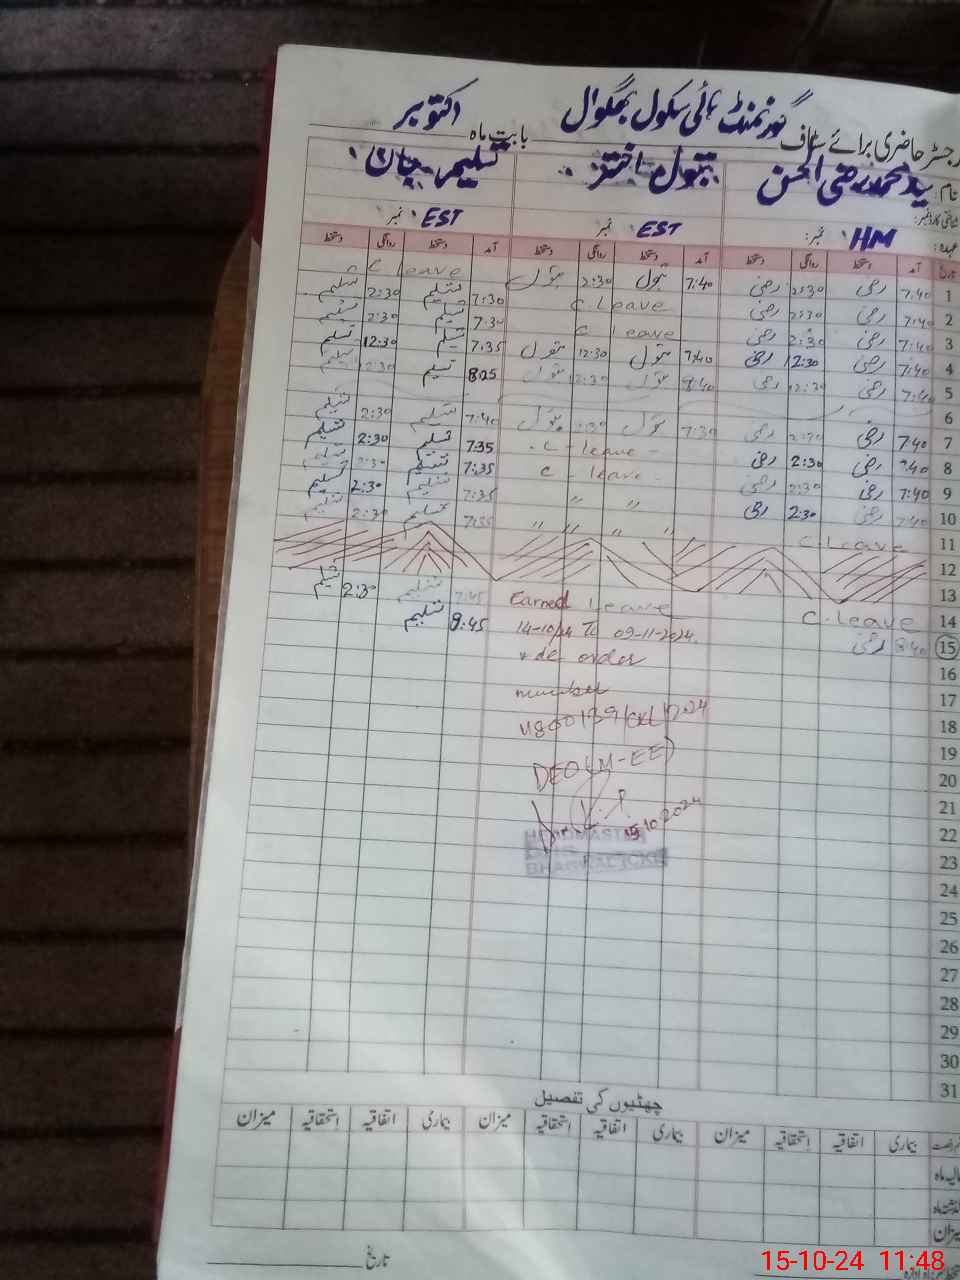 رجسٹر حاضری برائے سٹاف گورنمنٹ ہائی سکول بھگوال بابت ماہ اکتوبر
نام: سید محمد رضی الحسن بتول اختر تسلیم جان
عہدہ: HM نمبر: EST نمبر EST نمبر
تاریخ آمد دستخط روانگی دستخط آمد دستخط روانگی دستخط آمد دستخط روانگی دستخط
1 7:40 رضی 2:30 رضی 7:40 بتول 2:30 بتول C leave
2 7:40 رضی 2:30 رضی C. leave 7:30 تسلیم 2:30 تسلیم
3 7:40 رضی 2:30 رضی C leave 7:30 تسلیم 2:30 تسلیم
4 7:40 رضی 12:30 رضی 7:40 بتول 12:30 بتول 7:35 تسلیم 12:30 تسلیم
5 7:40 رضی 12:30 رضی 8:40 بتول 12:30 بتول 8:25 تسلیم 2:30 تسلیم
6
7 7:40 رضی 2:30 رضی 7:30 بتول 2:30 بتول 7:40 تسلیم 2:30 تسلیم
8 7:40 رضی 2:30 رضی C - leave - 7:35 تسلیم 2:30 تسلیم
9 7:40 رضی 2:30 رضی C leave - 7:35 تسلیم 2:30 تسلیم
10 7:40 رضی 2:30 رضی " " 7:35 تسلیم 2:30 تسلیم
11 C. Leave " " " " 7:35 تسلیم 2:30 تسلیم
12
13
14 C. leave Earned leave 7:45 تسلیم 2:30 تسلیم
15 8:40 رضی 14-10/24 To 09-11-2024. 8:45 تسلیم
16 order
17 number
18
19 DEO (M-EE)
20
21
22 15.10.2024
HEADMASTER
23
24
25
26
27
28
29
30
31
چھٹیوں کی تفصیل
بیماری اتفاقیہ استحقاقیہ میزان بیماری اتفاقیہ استحقاقیہ میزان بیماری اتفاقیہ استحقاقیہ میزان
میزان
تاریخ
15-10-24 11:48